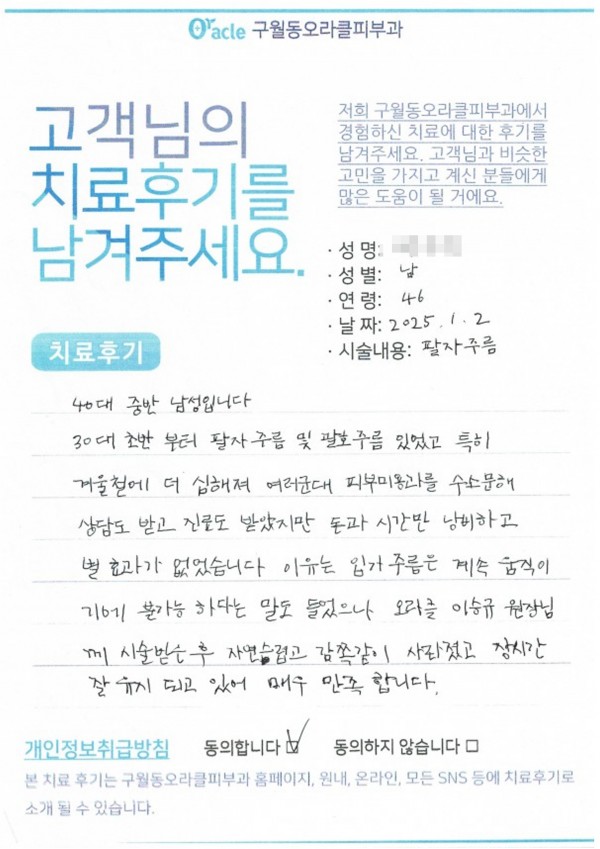 Oracle 구월동오라클피부과
고객님의
치료후기를
남겨주세요.
저희 구월동오라클피부과에서
경험하신 치료에 대한 후기를
남겨주세요. 고객님과 비슷한
고민을 가지고 계신 분들에게
많은 도움이 될 거에요.
· 성 명:
· 성 별: 남
· 연 령: 46
· 날 짜: 2025. 1. 2
· 시술내용: 팔자주름
치료후기
40대 중반 남성입니다
30대 초반 부터 팔자주름 및 팔호주름 있었고 특히
겨울철에 더 심해져 여러군대 피부미용과를 수소문해
상담도 받고 진료도 받았지만 돈과 시간만 낭비하고
별 효과가 없었습니다 이유는 입가 주름은 계속 움직이
기에 불가능 하다는 말도 들었으나 오라클 이승규 원장님
께 시술받은후 자연습럽고 감쪽같이 사라졌고 장시간
잘 유지 되고 있어 매우 만족 합니다.
개인정보취급방침 동의합니다 ☑ 동의하지 않습니다 □
본 치료 후기는 구월동오라클피부과 홈페이지, 원내, 온라인, 모든 SNS 등에 치료후기로
소개 될 수 있습니다.